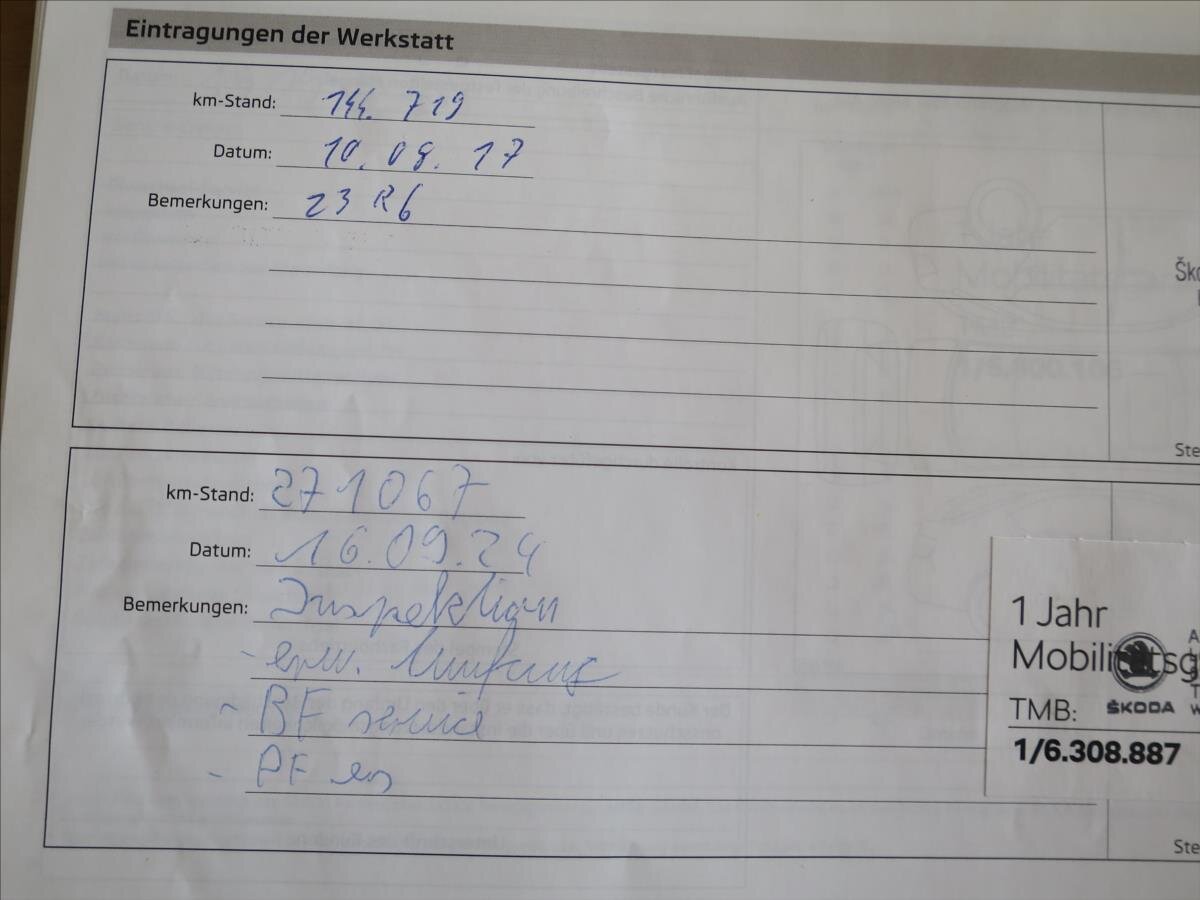 Eintragungen der Werkstatt
km-Stand: 144.719
Datum: 10.08.17
Bemerkungen: 23 R6
Ško
Ste
km-Stand: 271067
Datum: 16.09.24
Bemerkungen: Inspektion
- erw. Umfang
- BF service
- PF en
1 Jahr
Mobilitätsg
TMB:
ŠKODA
1/6.308.887
Ste